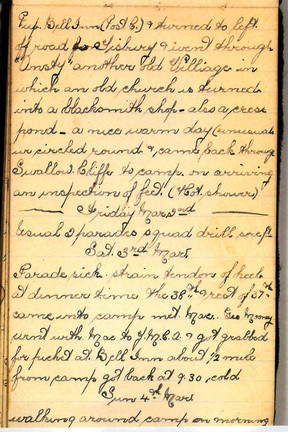 Bell Inn (Post C.) & turned to left
of road to Tisbury & went through
"Ansty" another old Village in
which an old church is turned
into a blacksmith shop - also a cress
pond - a nice warm day (unusual)
we circled round & came back through
Swallow Cliffe to camp on arriving
an inspection of feet. (Hot shower)
Friday Mar 2nd
Usual parades squad drill
Sat. 3rd Mar
Parade sick. strain tendon of heel
at dinner time the 38th of 57th
came into camp met Macs. Geo Money
went with Mac to Y.M.C.A. & got grabbed
for picket at Bell Inn about 1/2 mile
from camp got back at 9.30. cold
Sun 4th Mar
walking around camp on morning